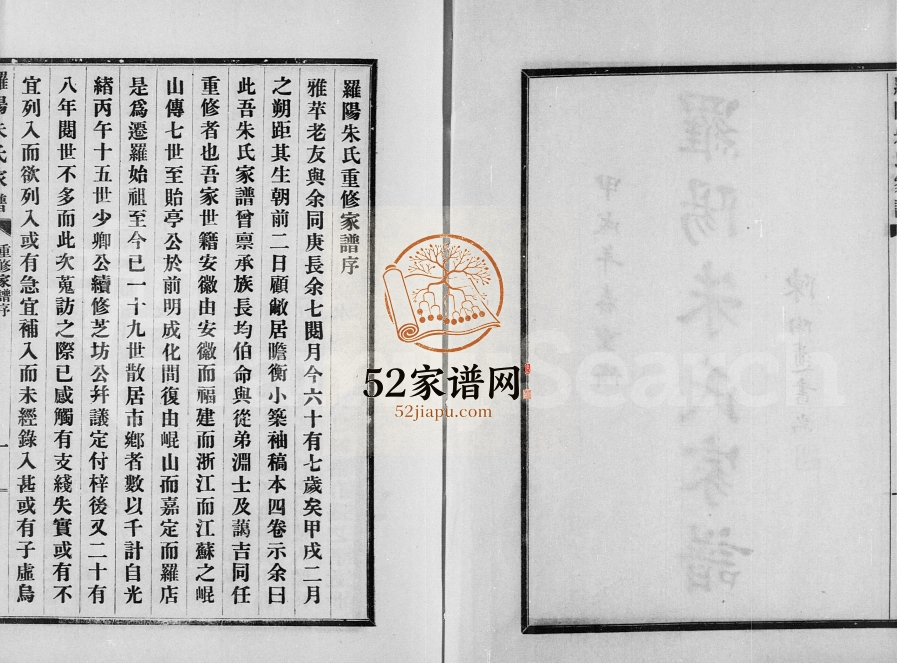 羅陽朱氏重修家譜序
雅苹老友與余同庚長余七閱月今六十有七歲矣甲戌二月
之朔距其生朝前二日顧敝居瞻衡小築袖稿本四卷示余曰
此吾朱氏家譜曾稟承族長均伯命與從弟淵士及藹吉同任
重修者也吾家世籍安徽由安徽而福建而浙江而江蘇之崐
山傳七世至貽亭公於前明成化間復由崐山而嘉定而羅店
是爲遷羅始祖至今已一十九世散居市鄉者數以千計自光
緒丙午十五世少卿公續修芝坊公幷議定付梓後又二十有
八年閱世不多而此次蒐訪之際已感觸有支綫失實或有不
宜列入而欲列入或有急宜補入而未經錄入甚或有子虛烏
羅陽朱氏家譜
重修家譜序
一
52家谱网
52jiapu.com
羅陽朱氏家譜
甲戌年春